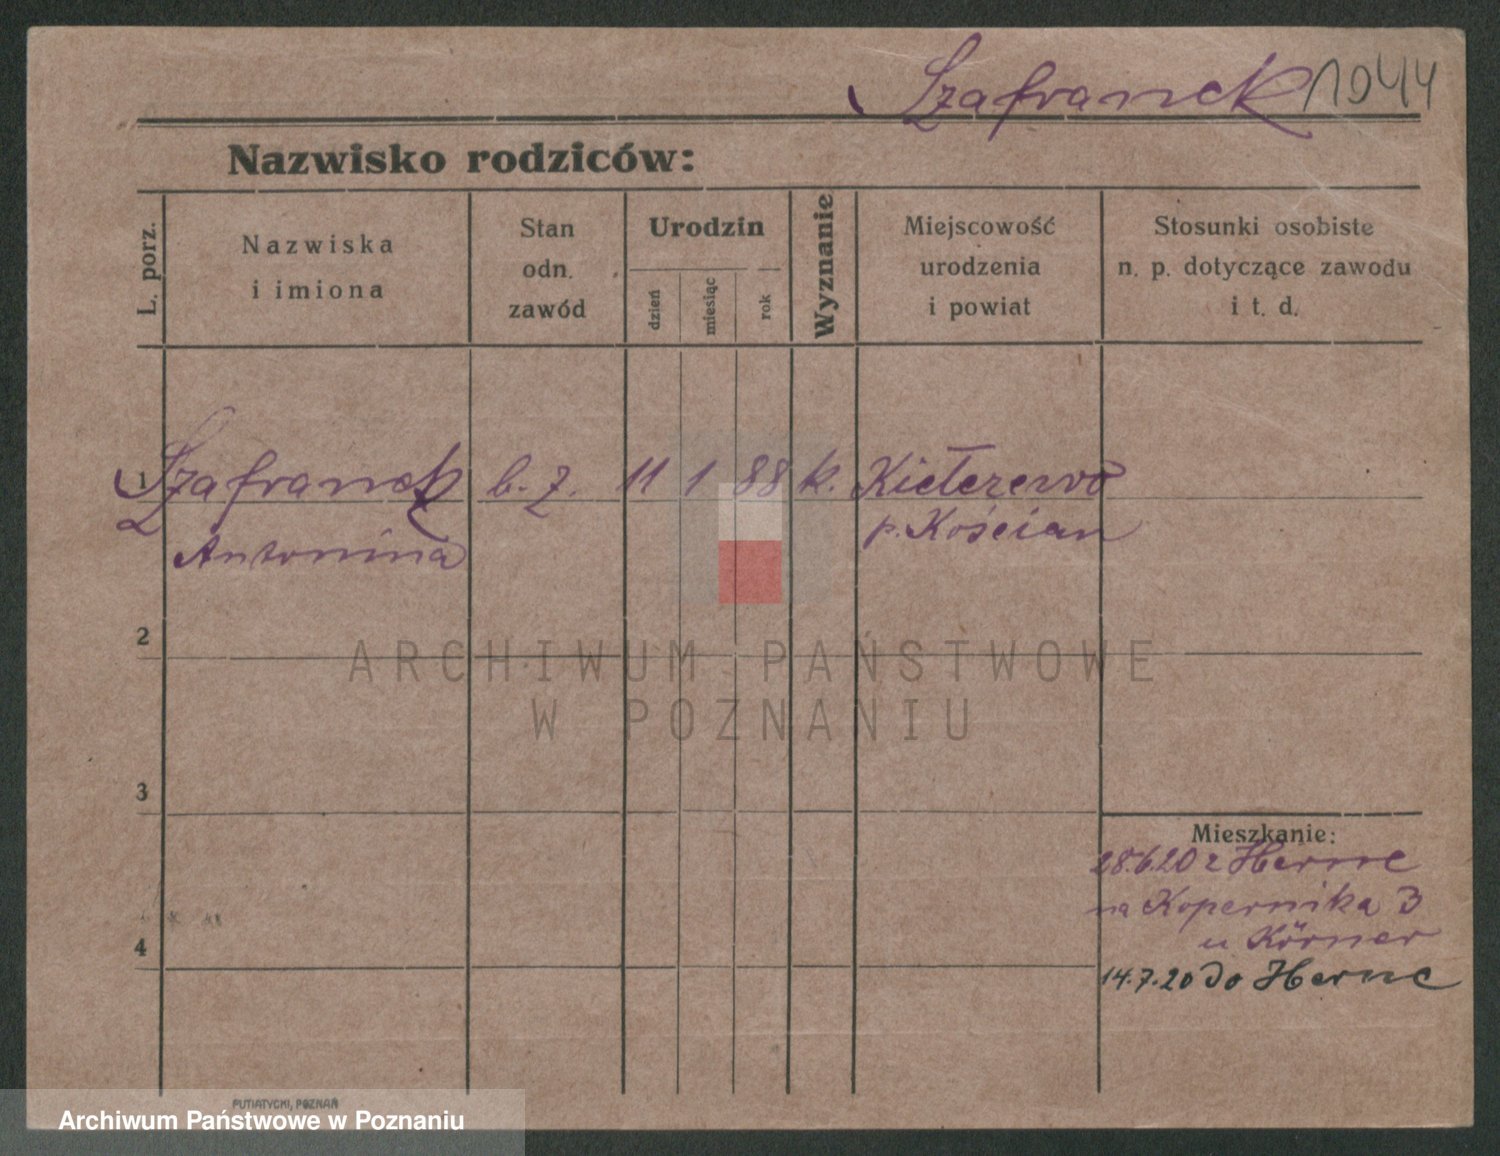 Szafranek 1044
Nazwisko rodziców:
L. porz.
Nazwiska
i imiona
Stan
odn.
zawód
Urodzin
dzień
miesiąc
rok
Wyznanie
Miejscowość
urodzenia
i powiat
Stosunki osobiste
n. p. dotyczące zawodu
i t. d.
1 Szafranek b. z. 11 1 88 k. Kiełczewo
Antonina p. Kościan
2
ARCHIWUM PAŃSTWOWE
W POZNANIU
3
Mieszkanie:
28.6.20 z Herne
na Kopernika 3
u Körner
4
14.7.20 do Herne
PUTIATYCKI, POZNAŃ
Archiwum Państwowe w Poznaniu